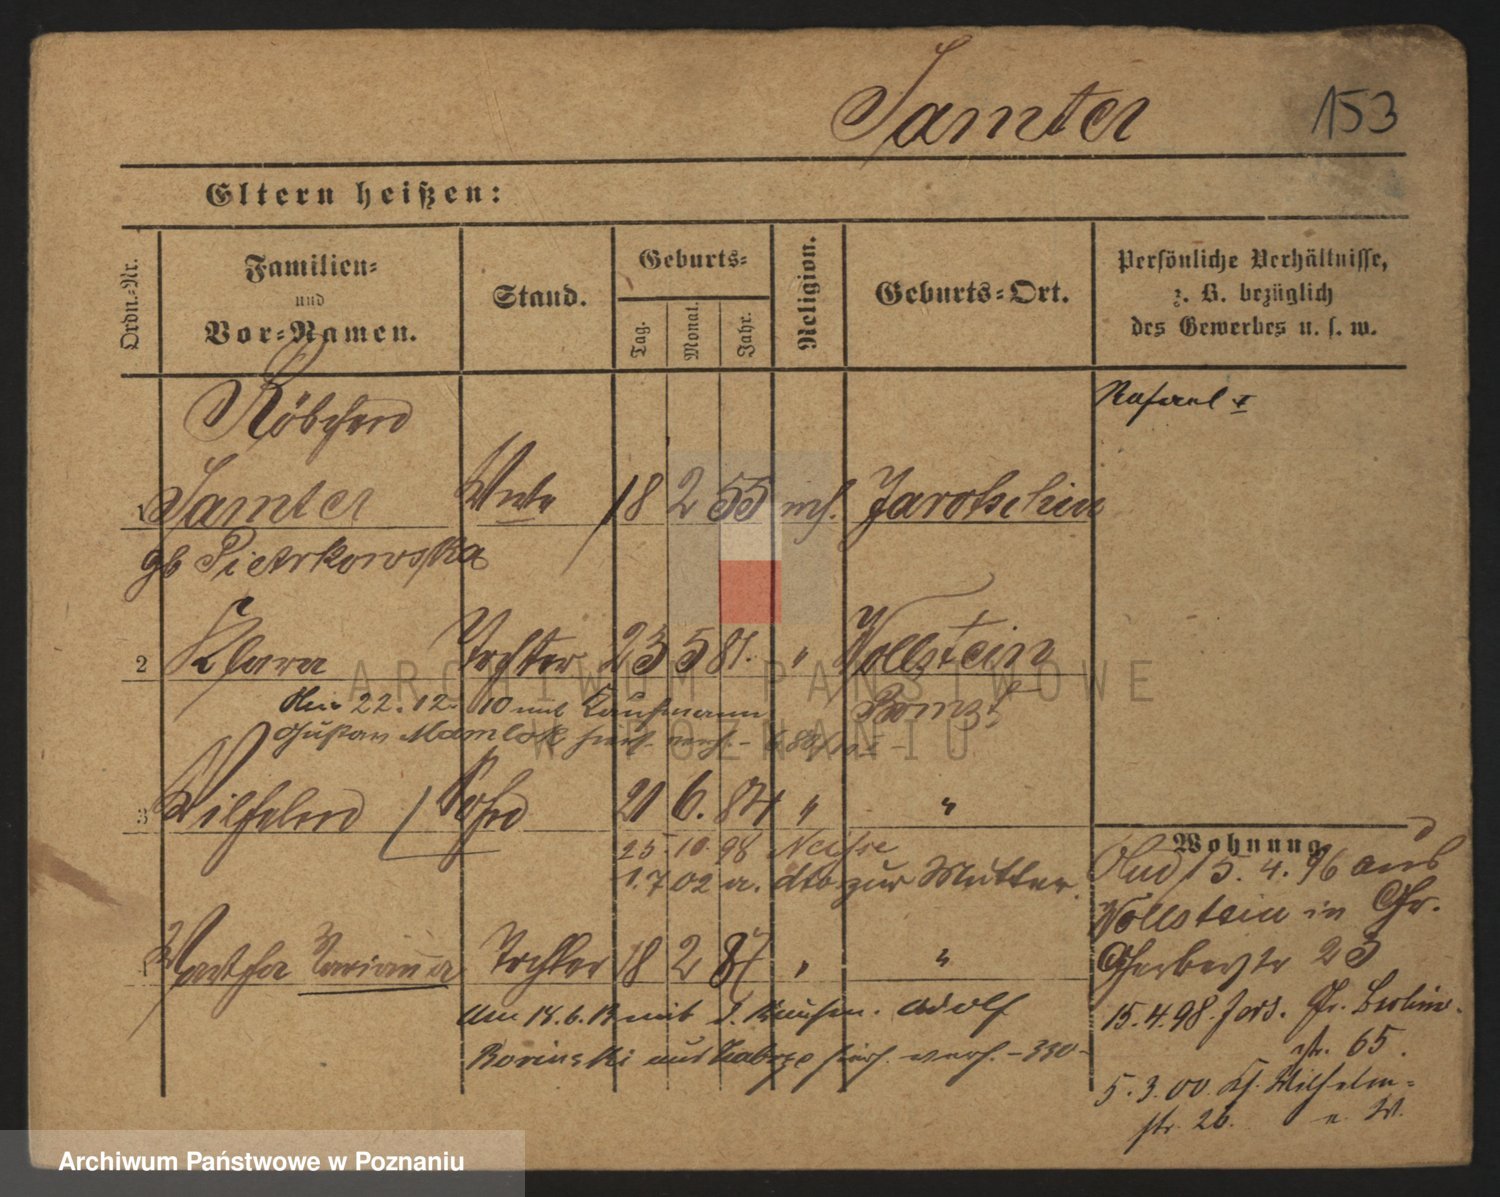 Samter 153
Eltern heißen:
Ordn.-Nr.
Familien-
und
Vor-Namen.
Stand.
Geburts-
Tag.
Monat.
Jahr.
Religion.
Geburts-Ort.
Persönliche Verhältnisse,
z. B. bezüglich
des Gewerbes u. s. w.
Röschen
1 Samter Wwe 18 2 55 mos. Jarotschin
gb Pietrkowska
2 Klara Tochter 23 5 81. " Wollstein
Am 22. 12. 10 mit Kaufmann Bomst
Gustav Mamlok hier verh.
3 Wilhelm Sohn 21 6. 84 " "
25 10. 98 Neisse
1. 7 02 a. dto zur Mutter.
4 Martha Marianna Tochter 18 2 87 " "
Am 14. 6. mit d. Kaufm. Adolf
Borinski aus Zabrze hier verh. - 330 -
Wohnung
15. 4. 96 aus
Wollstein in Gr.
Gerberstr 23
15. 4. 98. Gr. Berliner-
str. 65.
5. 3. 00. Ks. Wilhelm-
str. 26. n. W.
ARCHIWUM PAŃSTWOWE
W POZNANIU
Archiwum Państwowe w Poznaniu